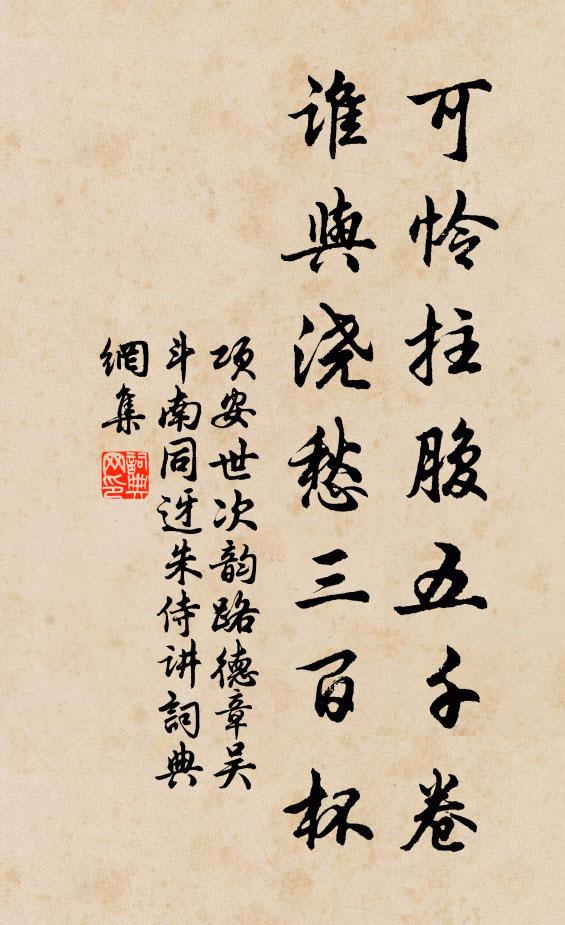 可怜拄腹五千卷
谁与浇愁三百杯
项安世次韵路德章吴
斗南同迓朱侍讲词典
網集
詞典網印